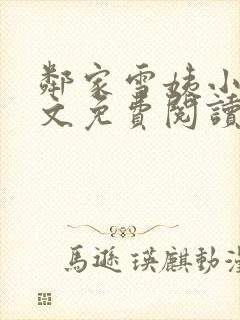 鄰家雪姨小
文免費閱讀
馬遜瑛麒動漫